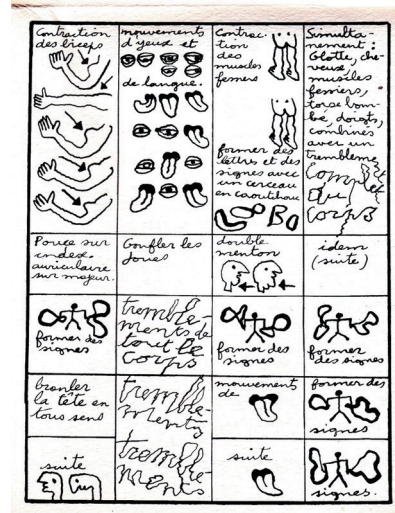 Contraction
des biceps
mouvements
d'yeux et
de langue.
Contrac-
tion
des
muscles
fessiers
former des
lettres et des
signes avec
un cerceau
en caoutchouc
Simulta-
nément :
Glotte, che-
veux,
muscles
fessiers,
torse bom-
bé, doigts,
combinés
avec un
tremblement
Complet
Du
Corps
Pouce sur
index.
auriculaire
sur majeur.
Gonfler les
joues
double
menton
idem
(suite)
former des
signes
tremble-
ments de
tout le
corps
former des
signes
former
des signes
branler
la tête en
tous sens
tremble-
ments
mouvements
de
former des
signes
suite
tremble-
ments
suite
signes.